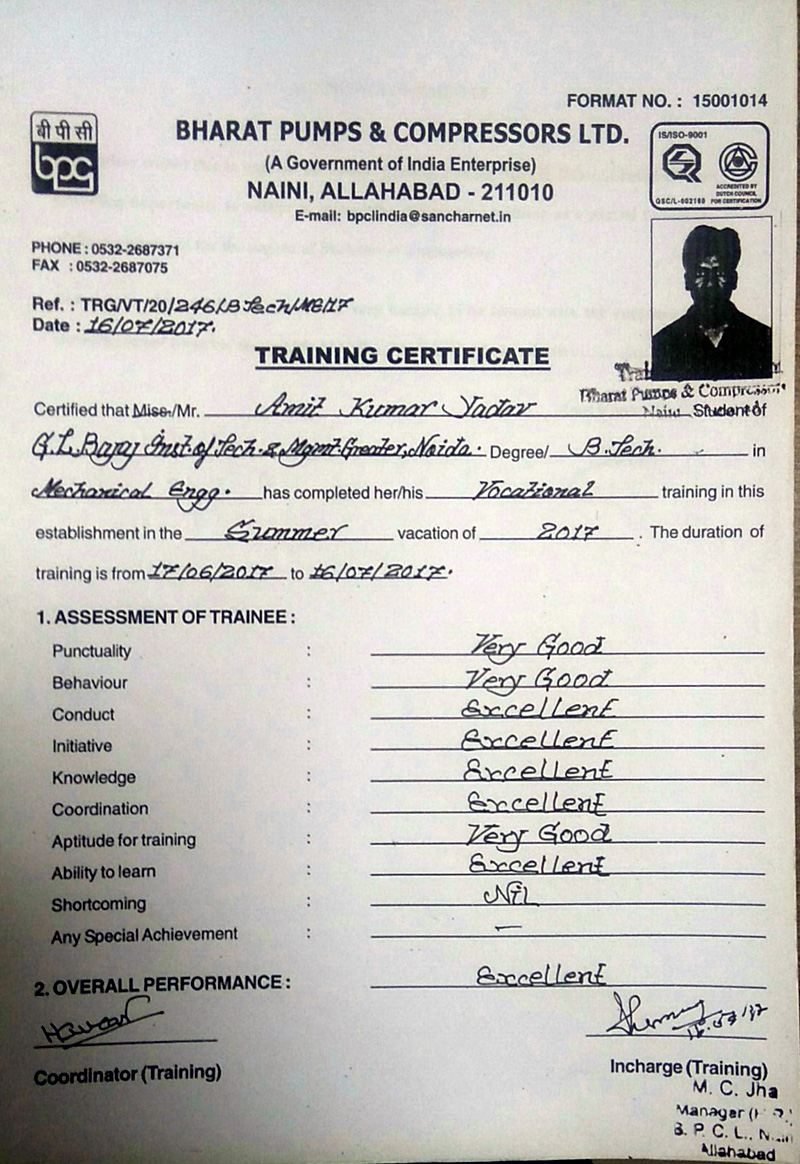 FORMAT NO. : 15001014
बी पी सी
bpc
BHARAT PUMPS & COMPRESSORS LTD.
(A Government of India Enterprise)
NAINI, ALLAHABAD - 211010
E-mail: bpclindia@sancharnet.in
IS/ISO-9001
ACCREDITED BY
DUTCH COUNCIL
FOR CERTIFICATION
QSC/L-002169
PHONE : 0532-2687371
FAX : 0532-2687075
Ref. : TRG/VT/20/246/B.Tech/ME/17
Date : 16/07/2017.
TRAINING CERTIFICATE
Bharat Pumps & Compressor
Naini
Certified that Miss./Mr. Amit Kumar Yadav Student of
G.L. Bajaj Inst. of Tech. & Mgmt. Greater, Noida. Degree/ B.Tech. in
Mechanical Engg. has completed her/his Vocational training in this
establishment in the Summer vacation of 2017 . The duration of
training is from 17/06/2017 to 16/07/2017.
1. ASSESSMENT OF TRAINEE :
Punctuality : Very Good
Behaviour : Very Good
Conduct : Excellent
Initiative : Excellent
Knowledge : Excellent
Coordination : Excellent
Aptitude for training : Very Good
Ability to learn : Excellent
Shortcoming : Nil
Any Special Achievement : —
2. OVERALL PERFORMANCE : Excellent
Coordinator (Training)
Incharge (Training)
M. C. Jha
Manager
B. P. C. L.,
Allahabad